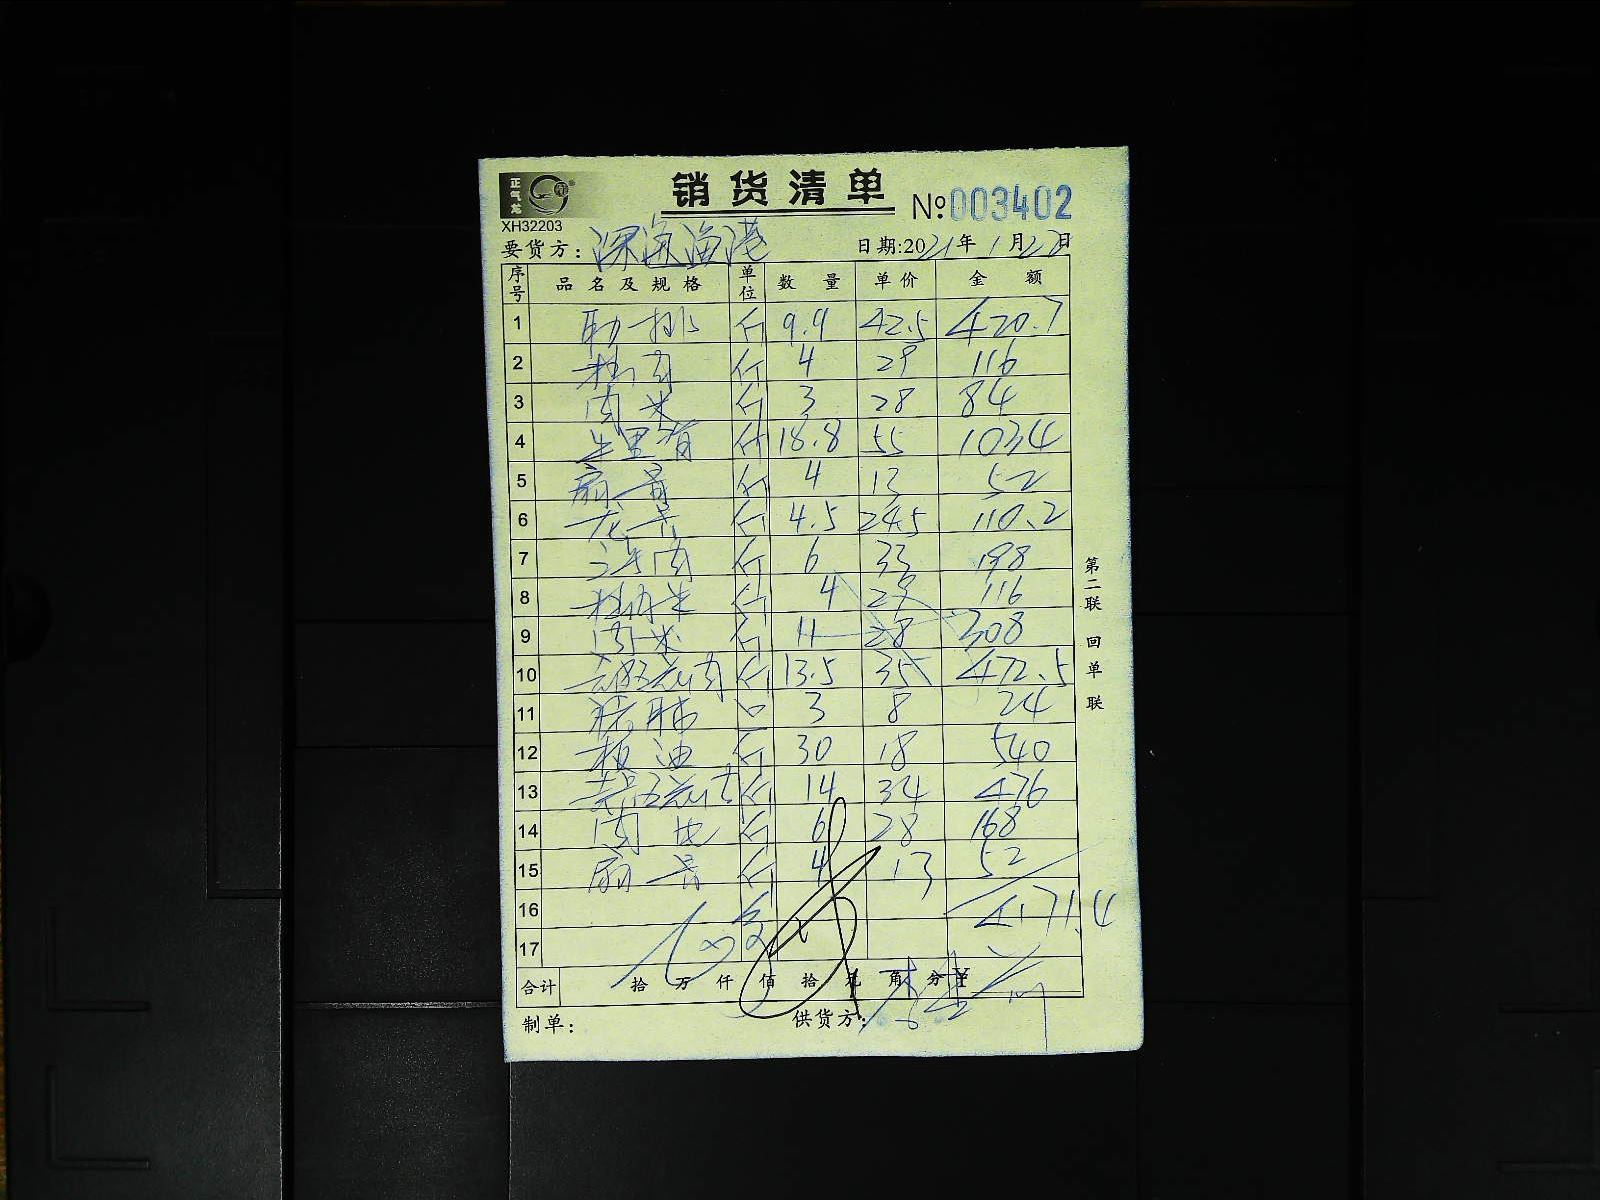 正气龙
销货清单
№003402
XH32203
要货方：深海渔港 日期:2021年1月22日
序号 品名及规格 单位 数量 单价 金额
1 肋排 斤 9.9 42.5 420.7
2 斤 4 29 116
3 肉米 斤 3 28 84
4 斤 18.8 55 1034
5 扇骨 斤 4 13 52
6 龙骨 斤 4.5 24.5 110.2
7 肉 斤 6 33 198
8 斤 4 29 116
9 肉米 斤 11 28 308
10 五花肉 斤 13.5 35 472.5
11 猪肺 口 3 8 24
12 板油 斤 30 18 540
13 五花肉 斤 14 34 476
14 肉 斤 6 28 168
15 扇骨 斤 4 13 52
16 4171.4
17
合计 拾 万 仟 佰 拾 元 角 分 ¥
制单： 供货方：
第二联 回单联